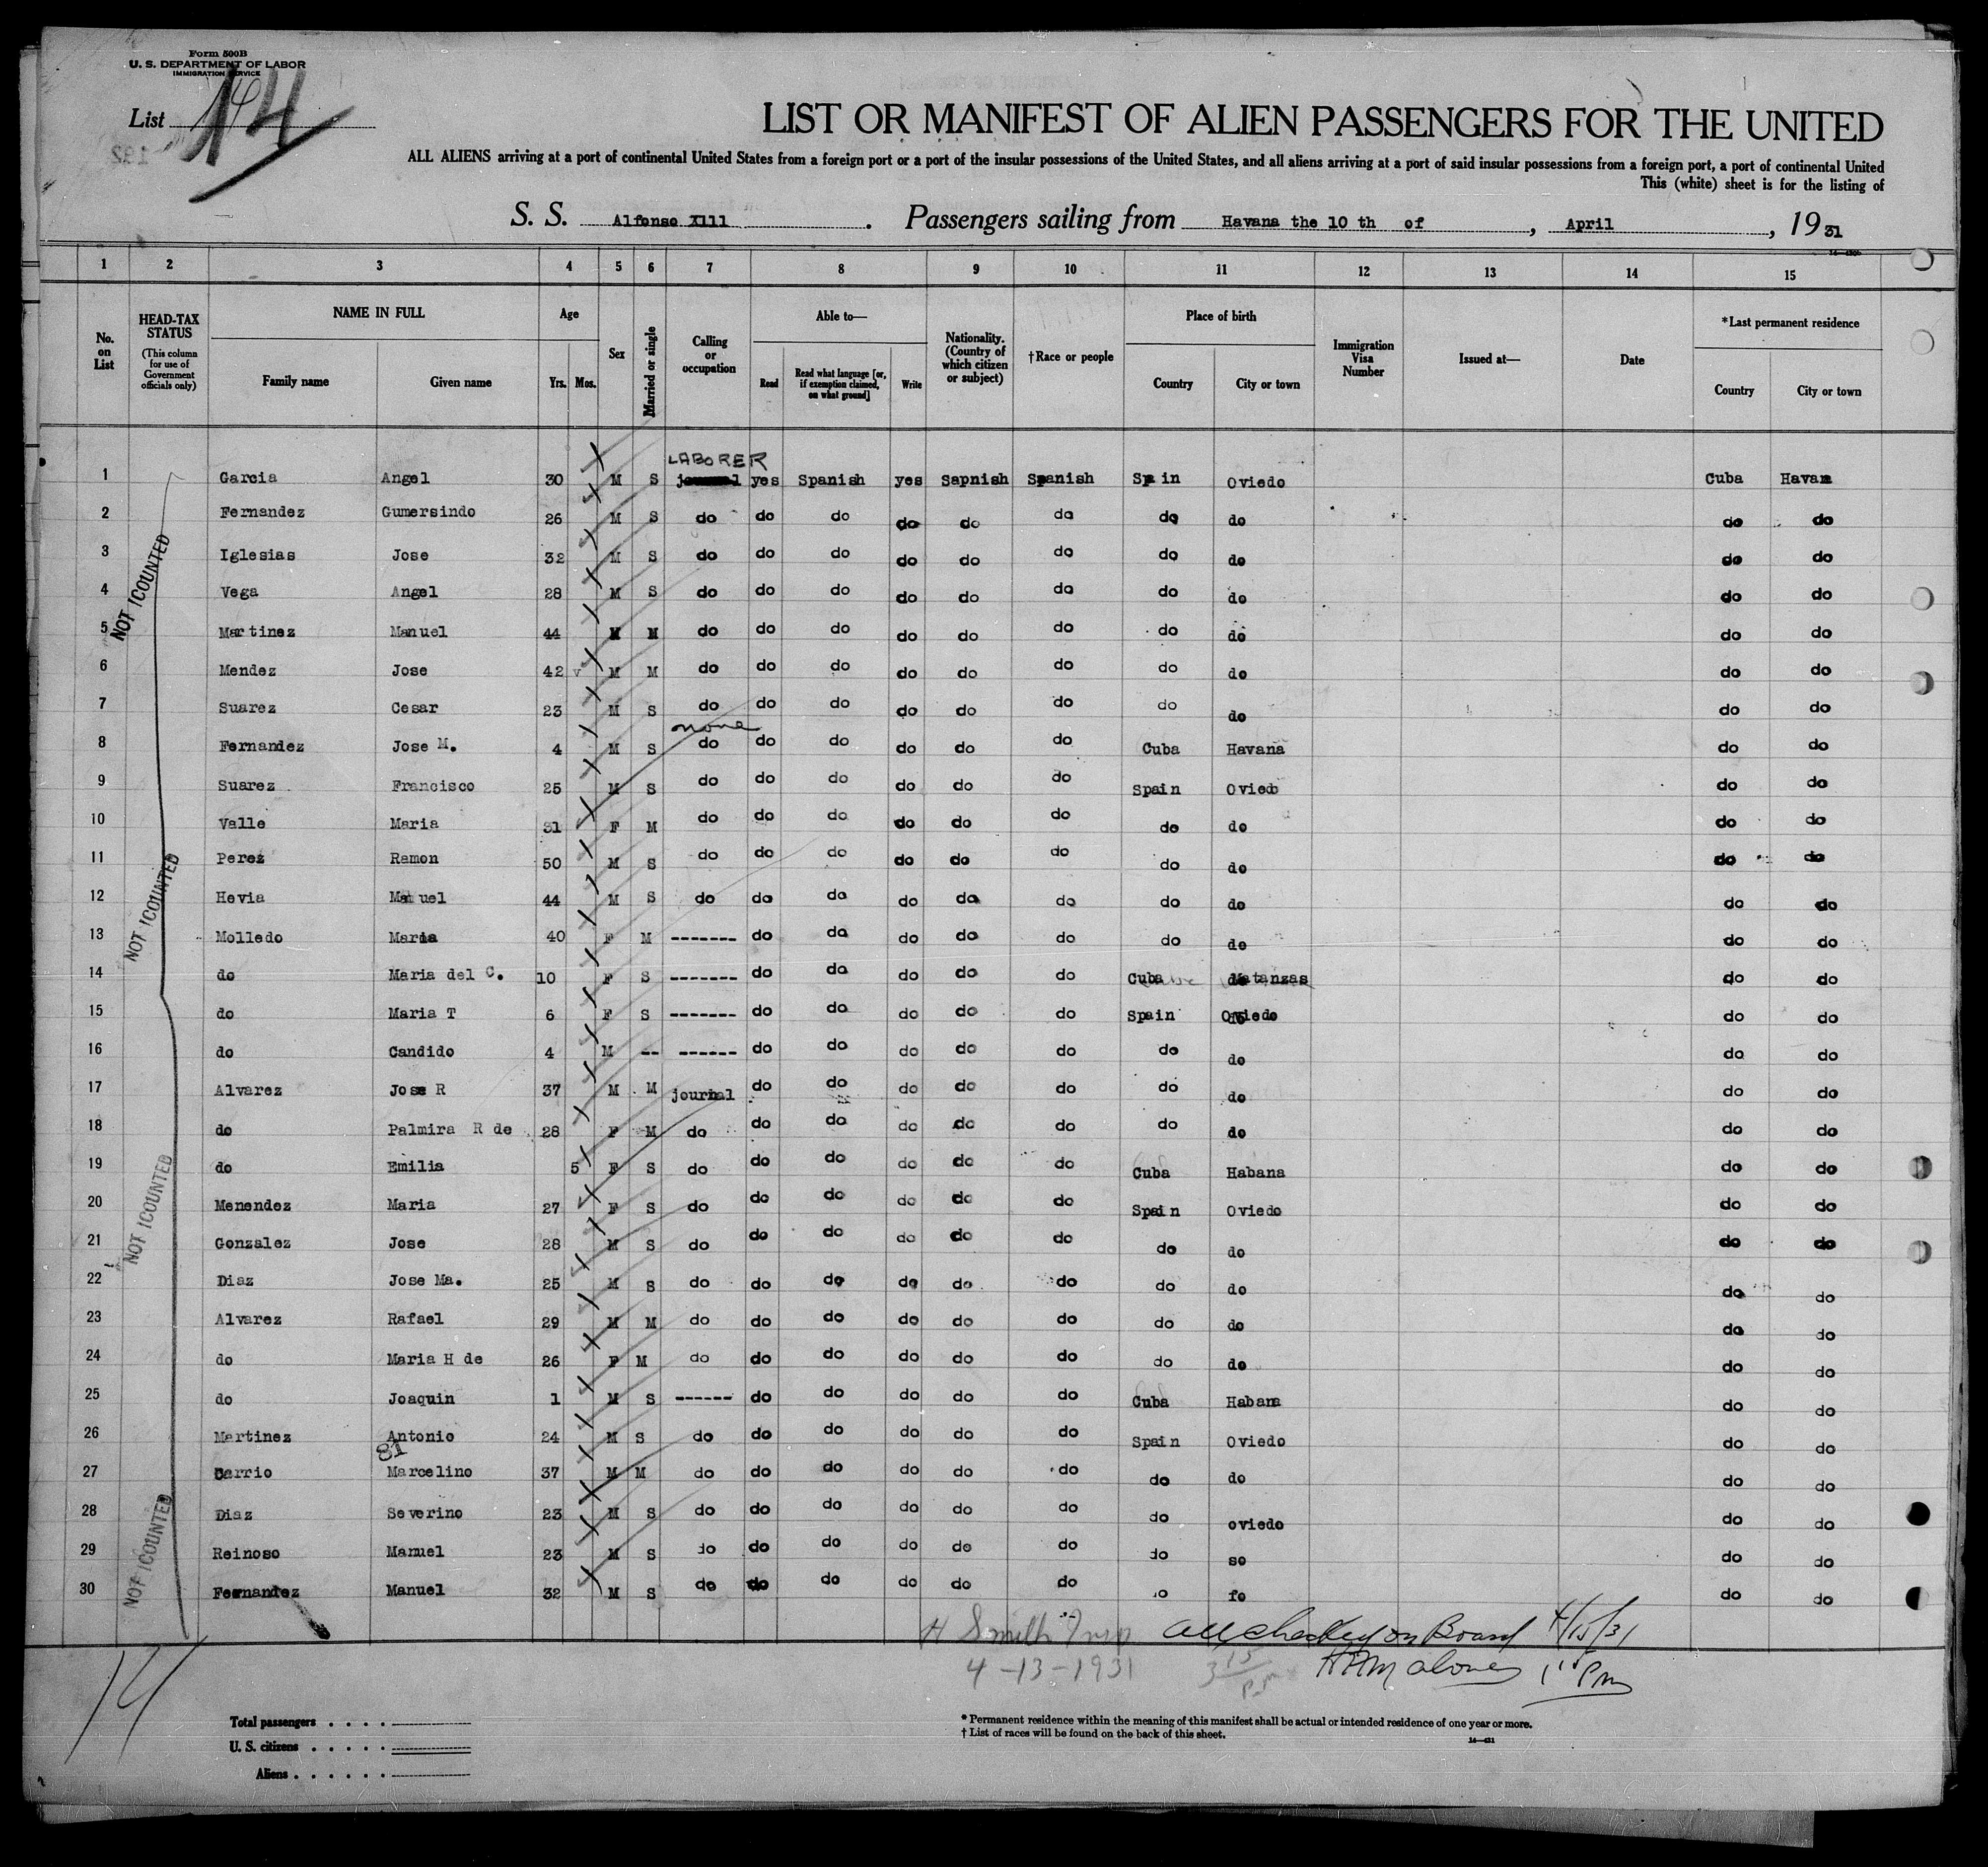 Form 500B
U. S. DEPARTMENT OF LABOR
IMMIGRATION SERVICE
List 14
LIST OR MANIFEST OF ALIEN PASSENGERS FOR THE UNITED
ALL ALIENS arriving at a port of continental United States from a foreign port or a port of the insular possessions of the United States, and all aliens arriving at a port of said insular possessions from a foreign port, a port of continental United
This (white) sheet is for the listing of
S. S. Alfonso X111 . Passengers sailing from Havana the 10 th of , April , 19 31
1 2 3 4 5 6 7 8 9 10 11 12 13 14 15
No. on List
HEAD-TAX STATUS (This column for use of Government officials only)
NAME IN FULL Family name Given name
Age Yrs. Mos.
Sex
Married or single
Calling or occupation
Able to— Read Read what language [or, if exemption claimed, on what ground] Write
Nationality. (Country of which citizen or subject)
†Race or people
Place of birth Country City or town
Immigration Visa Number
Issued at—
Date
*Last permanent residence Country City or town
LABORER
1 Garcia Angel 30 M S journal yes Spanish yes Sapnish Spanish Spain Oviedo Cuba Havana
2 Fernandez Gumersindo 26 M S do do do do do do do do do do
3 Iglesias Jose 32 M S do do do do do do do do do do
4 Vega Angel 28 M S do do do do do do do do do do
5 Martinez Manuel 44 M M do do do do do do do do do do
6 Mendez Jose 42 v M M do do do do do do do do do do
7 Suarez Cesar 23 M S do do do do do do do do do do
none
8 Fernandez Jose M. 4 M S do do do do do do Cuba Havana do do
9 Suarez Francisco 25 M S do do do do do do Spain Oviedo do do
10 Valle Maria 31 F M do do do do do do do do do do
11 Perez Ramon 50 M S do do do do do do do do do do
12 Hevia Manuel 44 M S do do do do do do do do do do
13 Molledo Maria 40 F M ------- do do do do do do do do do
14 do Maria del C. 10 F S ------- do do do do do Cuba Matanzas do do
15 do Maria T 6 F S ------- do do do do do Spain Oviedo do do
16 do Candido 4 M -- ------ do do do do do do do do do
17 Alvarez Jose R 37 M M journal do do do do do do do do do
18 do Palmira R de 28 F M do do do do do do do do do do
19 do Emilia 5 F S do do do do do do Cuba Habana do do
20 Menendez Maria 27 F S do do do do do do Spain Oviedo do do
21 Gonzalez Jose 28 M S do do do do do do do do do do
22 Diaz Jose Ma. 25 M S do do do do do do do do do do
23 Alvarez Rafael 29 M M do do do do do do do do do do
24 do Maria H de 26 F M do do do do do do do do do do
25 do Joaquin 1 M S ------ do do do do do Cuba Habana do do
26 Martinez Antonio 24 M S do do do do do do Spain Oviedo do do
27 Carrio Marcelino 37 M M do do do do do do do do do do
28 Diaz Severino 23 M S do do do do do do do oviedo do do
29 Reinoso Manuel 23 M S do do do do do do do so do do
30 Fernandez Manuel 32 M S do do do do do do do fo do do
NOT !COUNTED
NOT !COUNTED
NOT !COUNTED
NOT !COUNTED
H Smith Insp All checked on Board 4/15/31
4-13-1931 3 15 P.m
14
Total passengers . . . .
U. S. citizens . . . . .
Aliens . . . . . .
* Permanent residence within the meaning of this manifest shall be actual or intended residence of one year or more.
† List of races will be found on the back of this sheet.